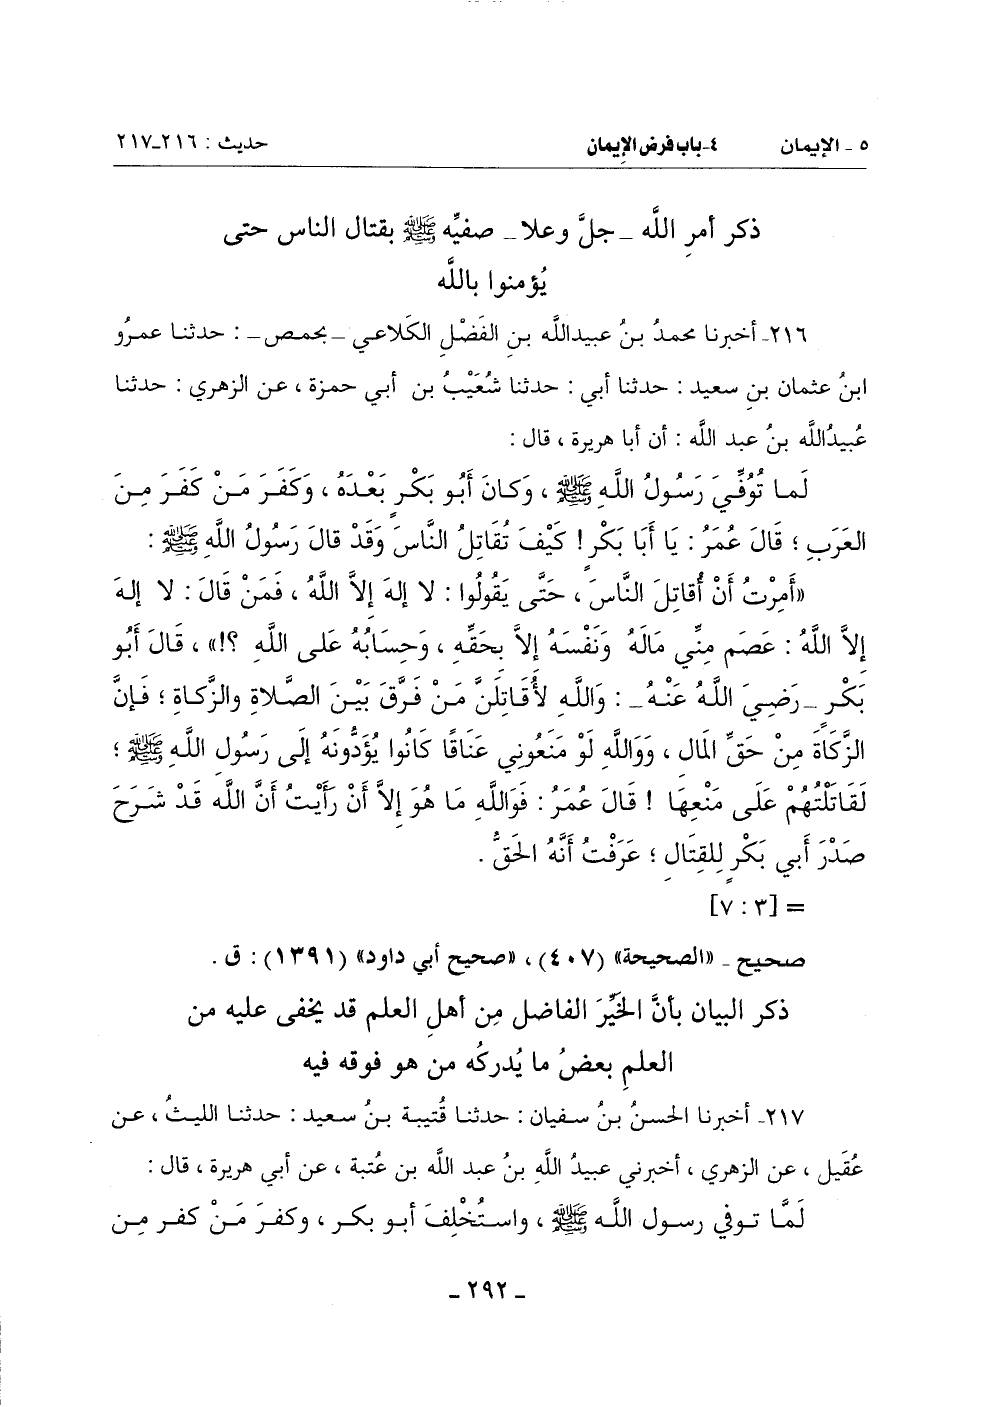 ٥ ـ الإيمان ٤ـ باب فرض الإيمان حديث : ٢١٦ـ٢١٧
ذكر أمرِ اللَّه ـ جلَّ وعلا ـ صفيِّه ﷺ بقتال الناس حتى
يُؤمنوا باللَّه
٢١٦ـ أخبرنا محمدُ بنُ عبيداللَّه بنِ الفَضْلِ الكَلَاعي ـ بحمص ـ : حدثنا عمرُو
ابنُ عثمان بنِ سعيد : حدثنا أبي : حدثنا شُعَيْبُ بن أبي حمزة ، عن الزهري : حدثنا
عُبيدُاللَّه بنُ عبد اللَّه : أن أبا هريرة ، قال :
لَما تُوُفِّيَ رَسُولُ اللَّهِ ﷺ ، وَكانَ أَبُو بَكْرٍ بَعْدَهُ ، وَكَفَرَ مَنْ كَفَرَ مِنَ
العَرَبِ ؛ قالَ عُمَرُ : يا أَبَا بَكْرٍ ! كَيْفَ تُقَاتِلُ النَّاسَ وَقَدْ قالَ رَسُولُ اللَّهِ ﷺ :
«أُمِرْتُ أَنْ أُقاتِلَ النَّاسَ ، حَتَّى يَقُولُوا : لا إلهَ إلاَّ اللَّهُ ، فَمَنْ قَالَ : لا إلهَ
إلاَّ اللَّهُ : عَصَم مِنِّي مَالَهُ وَنَفْسَهُ إلاَّ بِحَقِّهِ ، وَحِسَابُهُ عَلى اللَّهِ ؟!» ، قَالَ أَبُو
بَكْرٍ ـ رَضِيَ اللَّهُ عَنْهُ ـ : وَاللَّهِ لأُقَاتِلَنَّ مَنْ فَرَّقَ بَيْنَ الصَّلاةِ والزَّكاةِ ؛ فَإنَّ
الزَّكَاةَ مِنْ حَقِّ المَالِ ، وَوَاللَّهِ لَوْ مَنَعُونِي عَنَاقًا كَانُوا يُؤَدُّونَهُ إلَى رَسُولِ اللَّهِ ﷺ ؛
لَقَاتَلْتُهُمْ عَلَى مَنْعِهَا ! قَالَ عُمَرُ : فَوَاللَّهِ مَا هُوَ إلاَّ أَنْ رَأَيْتُ أَنَّ اللَّهَ قَدْ شَرَحَ
صَدْرَ أَبي بَكْرٍ لِلقِتَالِ ؛ عَرَفْتُ أَنَّهُ الحَقُّ .
= [٧ : ٣]
صحيح ـ «الصحيحة» (٤٠٧) ، «صحيح أبي داود» (١٣٩١) : ق .
ذكر البيان بأنَّ الخَيِّرَ الفاضل مِن أهلِ العلم قد يخفى عليه من
العلمِ بعضُ ما يُدركُه من هو فوقه فيه
٢١٧ـ أخبرنا الحسنُ بنُ سفيان : حدثنا قُتيبة بنُ سعيد : حدثنا الليثُ ، عن
عُقَيل ، عن الزهري ، أخبرني عبيدُ اللَّهِ بنُ عبد اللَّه بن عُتبة ، عن أبي هريرة ، قال :
لَمَّا توفي رسول اللَّه ﷺ ، واستُخْلِفَ أبو بكر ، وكفرَ مَنْ كفر مِن
ـ ٢٩٢ ـ